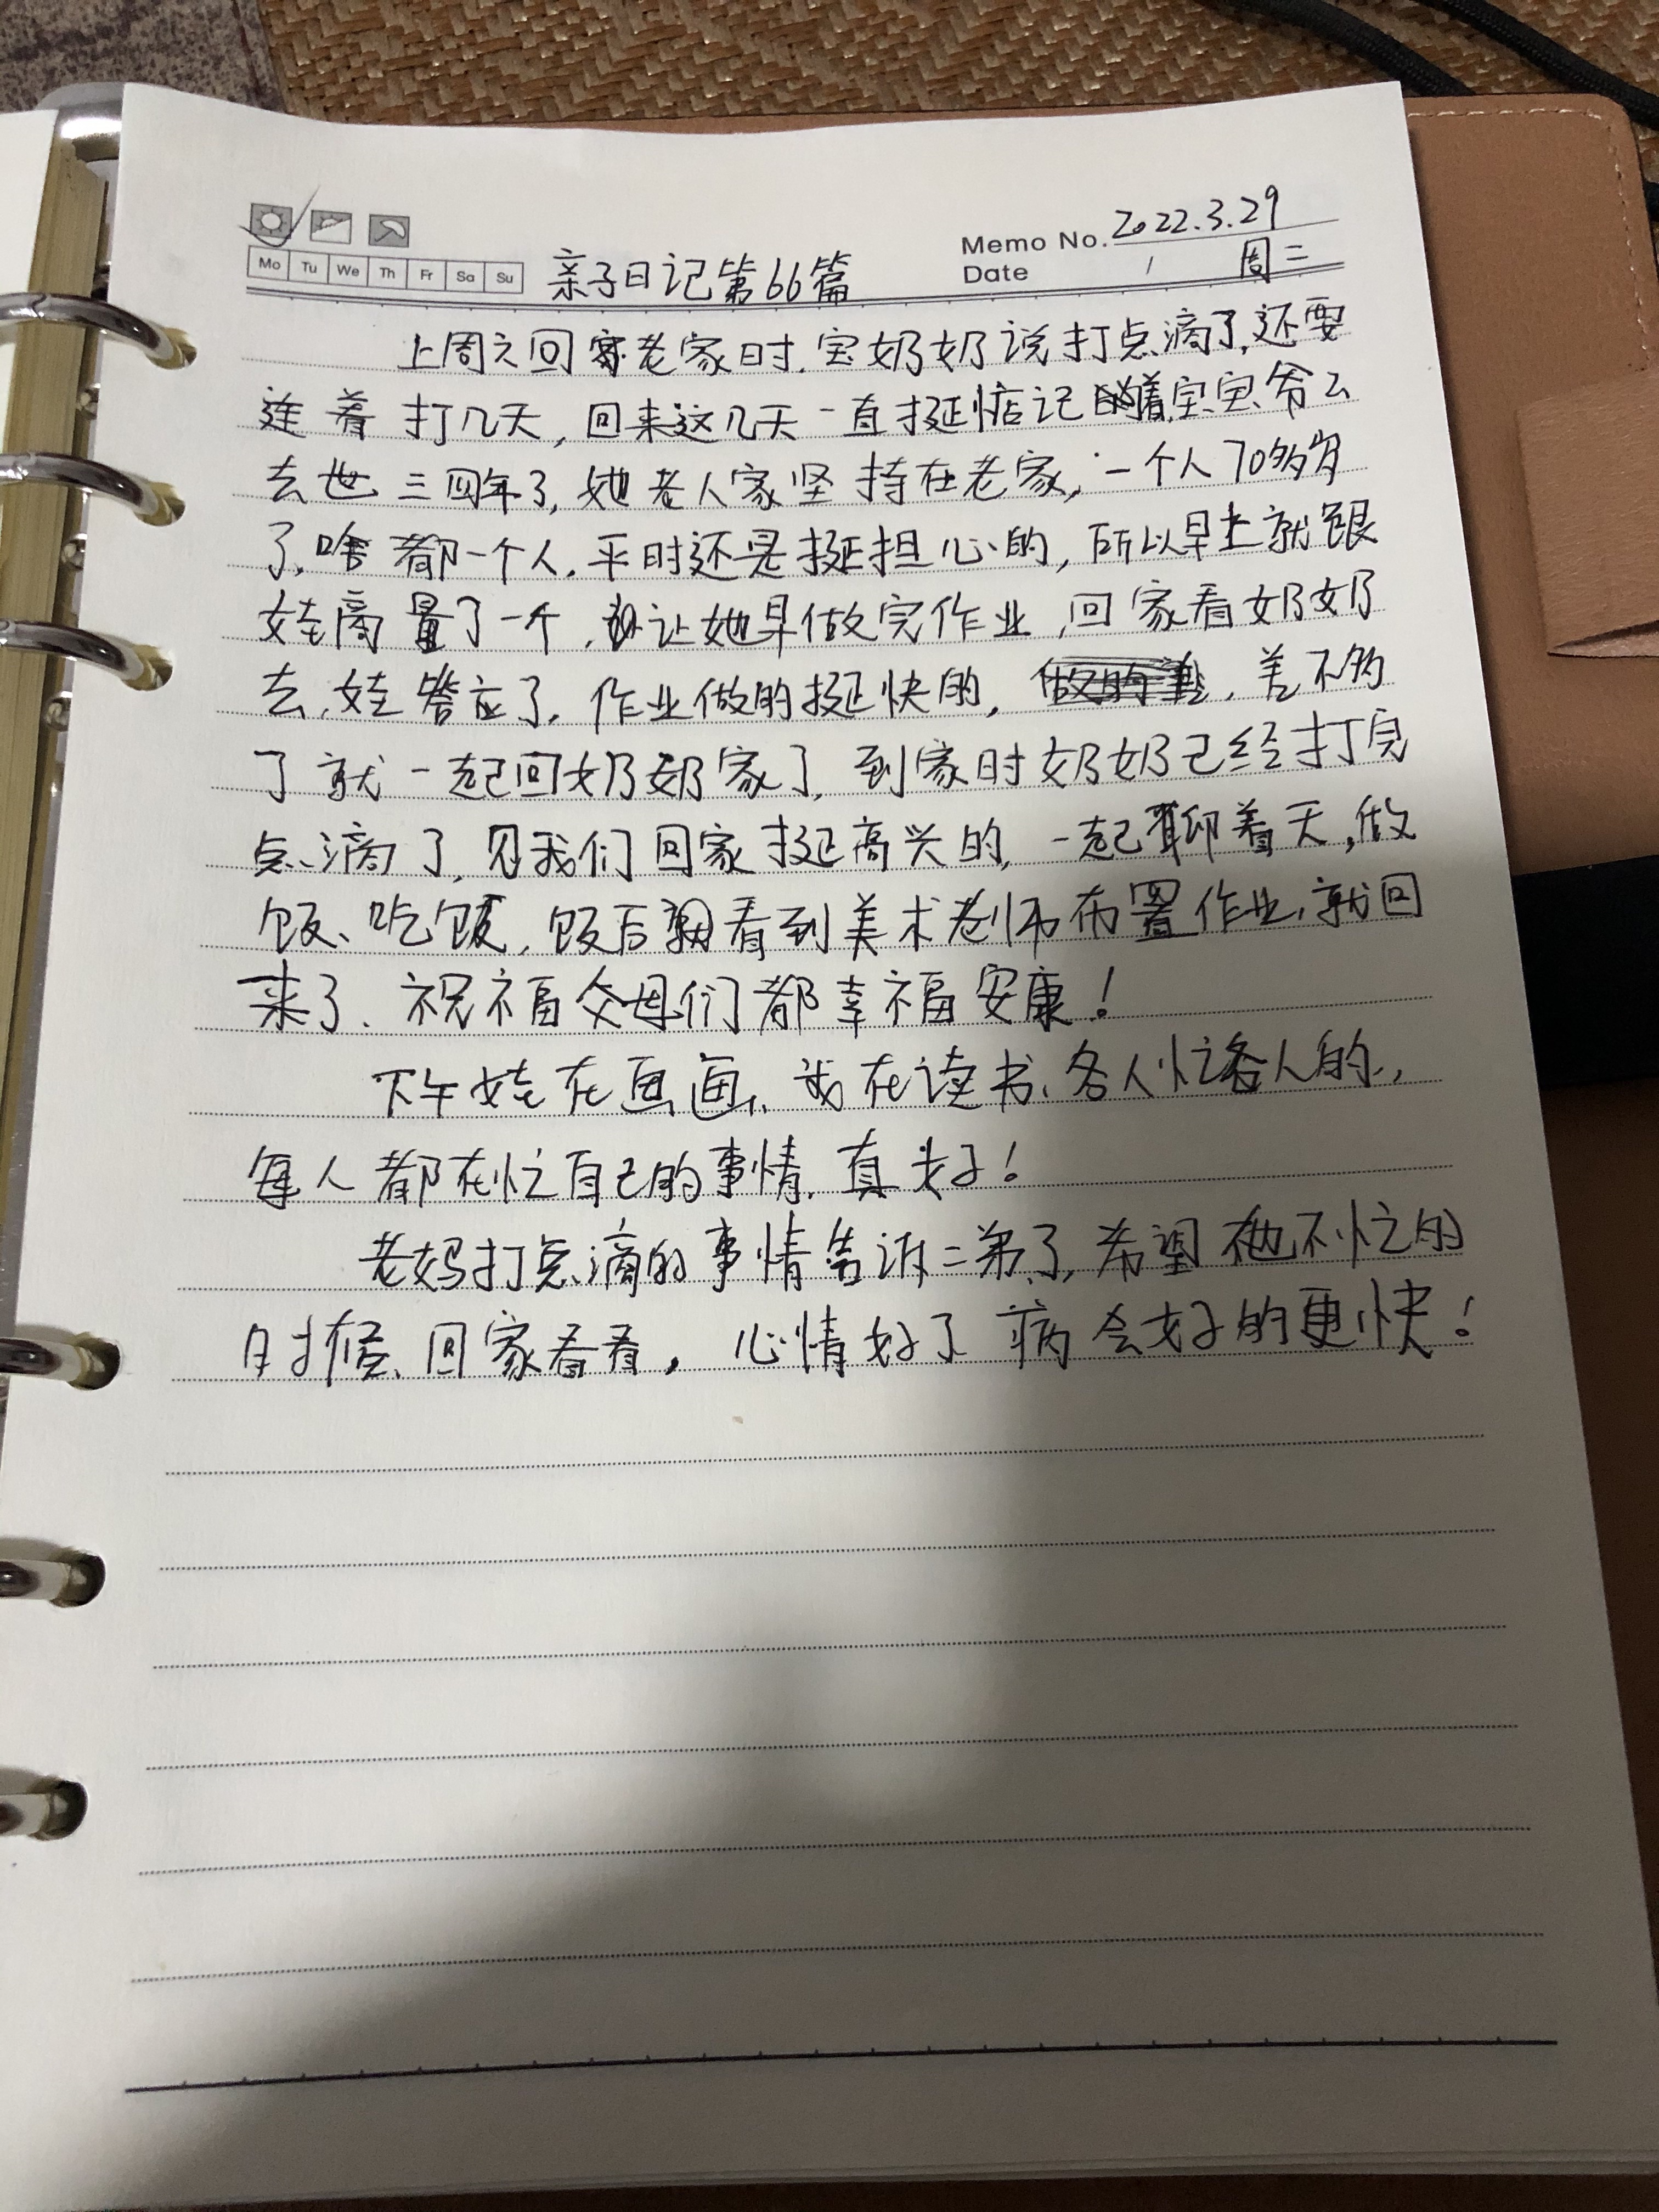 Memo No. 2022.3.29
Mo Tu We Th Fr Sa Su
亲子日记第66篇
Date / 周二
上周六回老家时.宝奶奶说打点滴了,还要
连着打几天,回来这几天一直挺惦记着,宝宝爷么
去世三四年了,她老人家坚持在老家,一个人70多岁
了.啥都一个人.平时还是挺担心的,所以早上就跟
娃商量了一个,让她早做完作业,回家看奶奶
去,娃答应了.作业做的挺快的,差不多
了就一起回奶奶家了,到家时奶奶已经打完
点滴了,见我们回家挺高兴的,一起聊着天,做
饭、吃饭,饭后看到美术老师布置作业,就回
来了、祝福父母们都幸福安康!
下午娃在画画,我在读书、各人忙各人的,
每人都在忙自己的事情,真好!
老妈打点滴的事情告诉二弟了,希望他不忙的
时候、回家看看,心情好了病会好的更快!